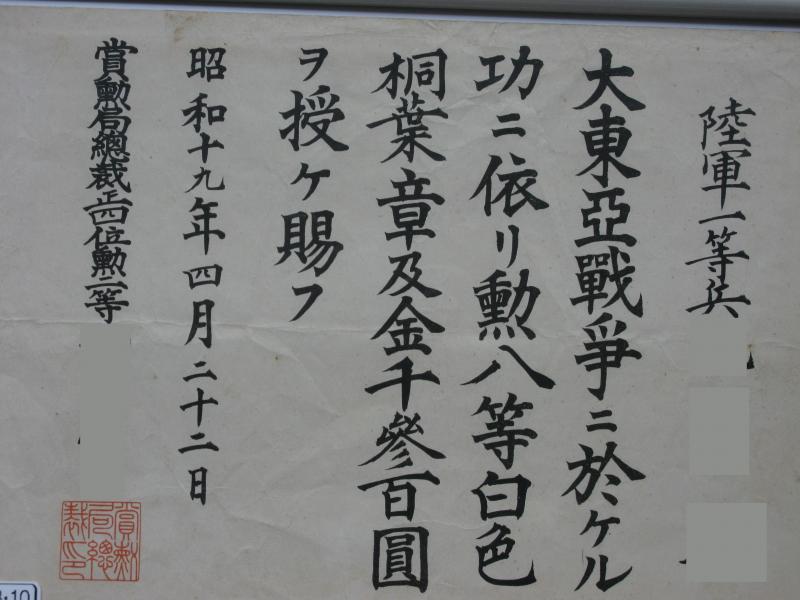 陸軍一等兵
大東亞戰爭ニ於ケル
功ニ依リ勲八等白色
桐葉章及金千參百圓
ヲ授ケ賜フ
昭和十九年四月二十二日
賞勲局總裁正四位勲二等
賞勲局總裁印
:10